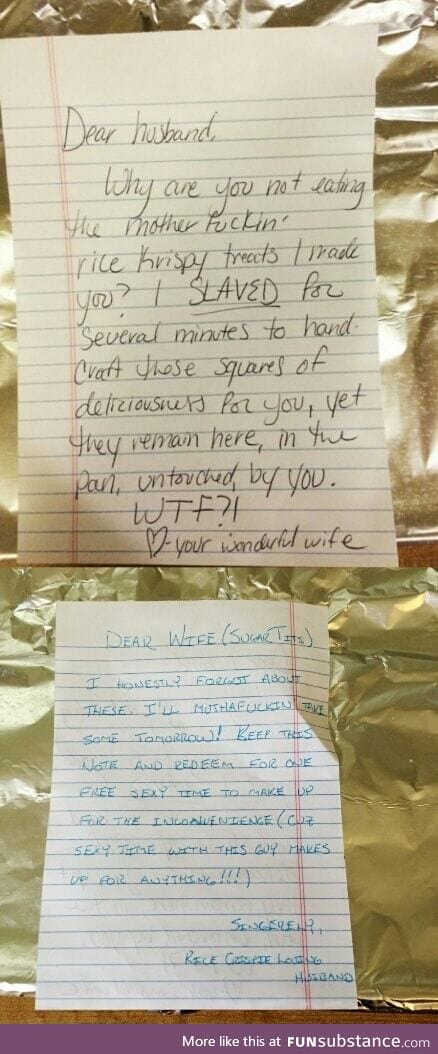 Dear husband,
Why are you not eating
the mother fuckin'
rice krispy treats I made
you? I SLAVED for
several minutes to hand-
craft these squares of
deliciousness for you, yet
they remain here, in the
pan, untouched, by you.
WTF?!
♡-your wonderful wife
DEAR WIFE (SUGAR TITS)
I HONESTLY FORGOT ABOUT
THESE. I'LL MUTHAFUCKIN TAKE
SOME TOMORROW! KEEP THIS
NOTE AND REDEEM FOR ONE
FREE SEXY TIME TO MAKE UP
FOR THE INCONVENIENCE (CUZ
SEXY TIME WITH THIS GUY MAKES
UP FOR ANYTHING!!!)
SINCERELY,
RICE CRISPIE LOVING
HUSBAND
More like this at FUNsubstance.com